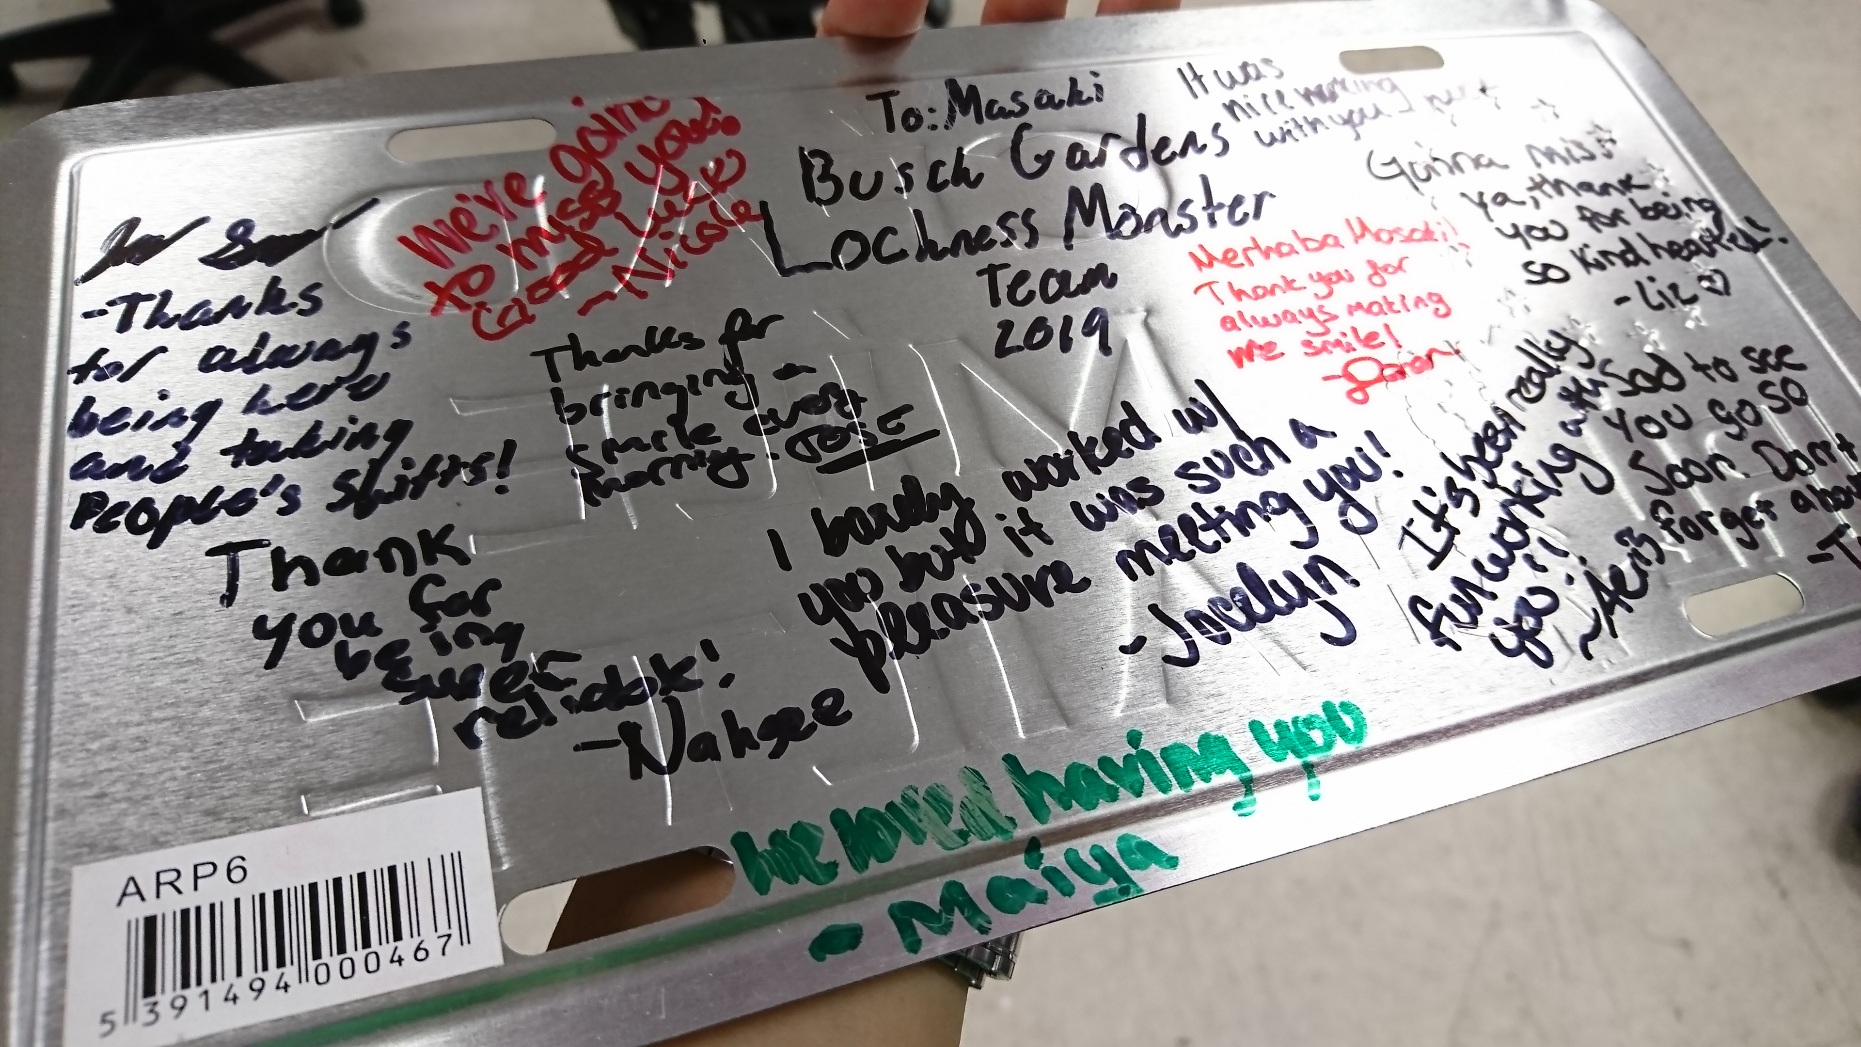 To: Masaki
Busch Gardens
Lochness Monster
Team
2019
It was
nice working
with you
We're going
to miss you.
Good Luck
-Nicole
Gonna miss
ya, thank
you for being
so kind hearted!
-Liz ♡
Merhaba Masaki!
Thank you for
always making
me smile!
-Thanks
for always
being here
and taking
People's Shifts!
Thanks for
bringing a
smile every
morning.
I barely worked w/
you but it was such a
pleasure meeting you!
-Jocelyn
It's been really
fun working with
you!!
~Aeris
Sad to see
you go so
Soon. Don't
forget about
Thank
you for
being
super
relidak!
-Nahgee
We loved having you
- Maiya
ARP6
5 391494 000467